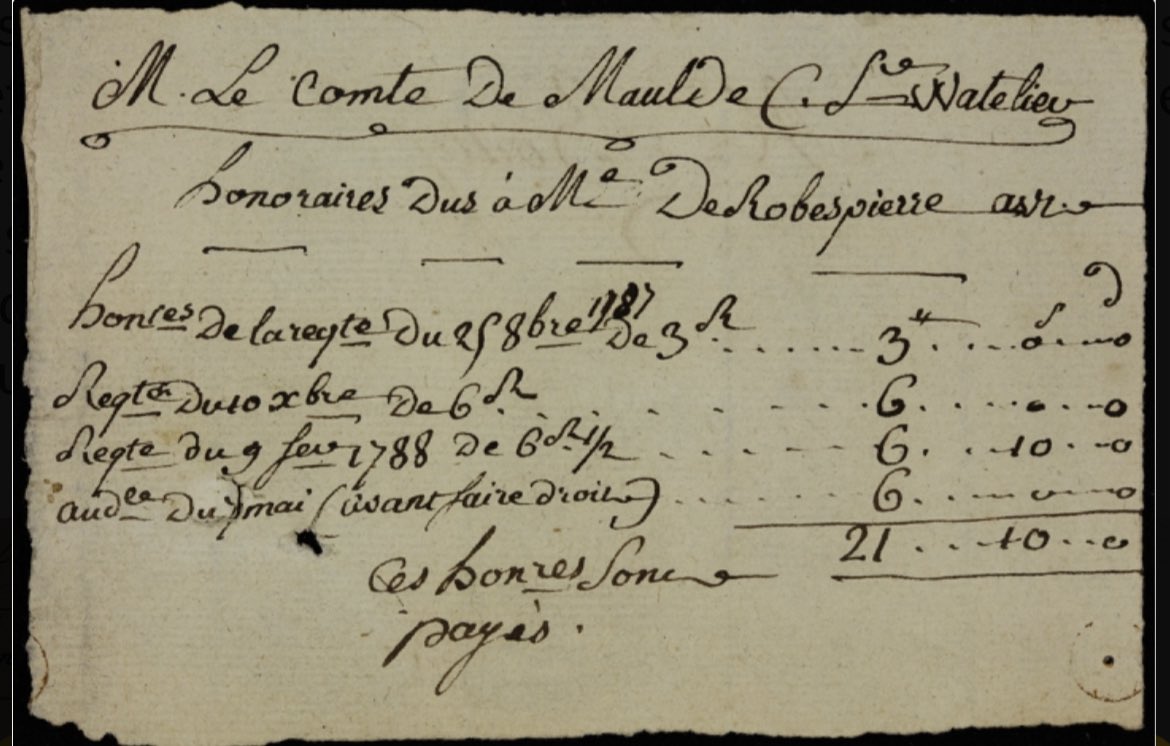 M. Le Comte De Maulde C. Sre Watelier
honoraires Dus à Me De Robespierre
honres De la reqte Du 25 8bre 1787 De 3 R ........ 3# .... s o .... d o
Reqte Du 10 xbre De 6 R ........ 6 .... o .... o
Reqte du 9 fev 1788 De 6 R 1/2 ........ 6 .... 10 .... o
audce Du mai (avant faire droit) ........ 6 .... o .... o
21 .... 10 .... o
Ces honres Sont
payés.